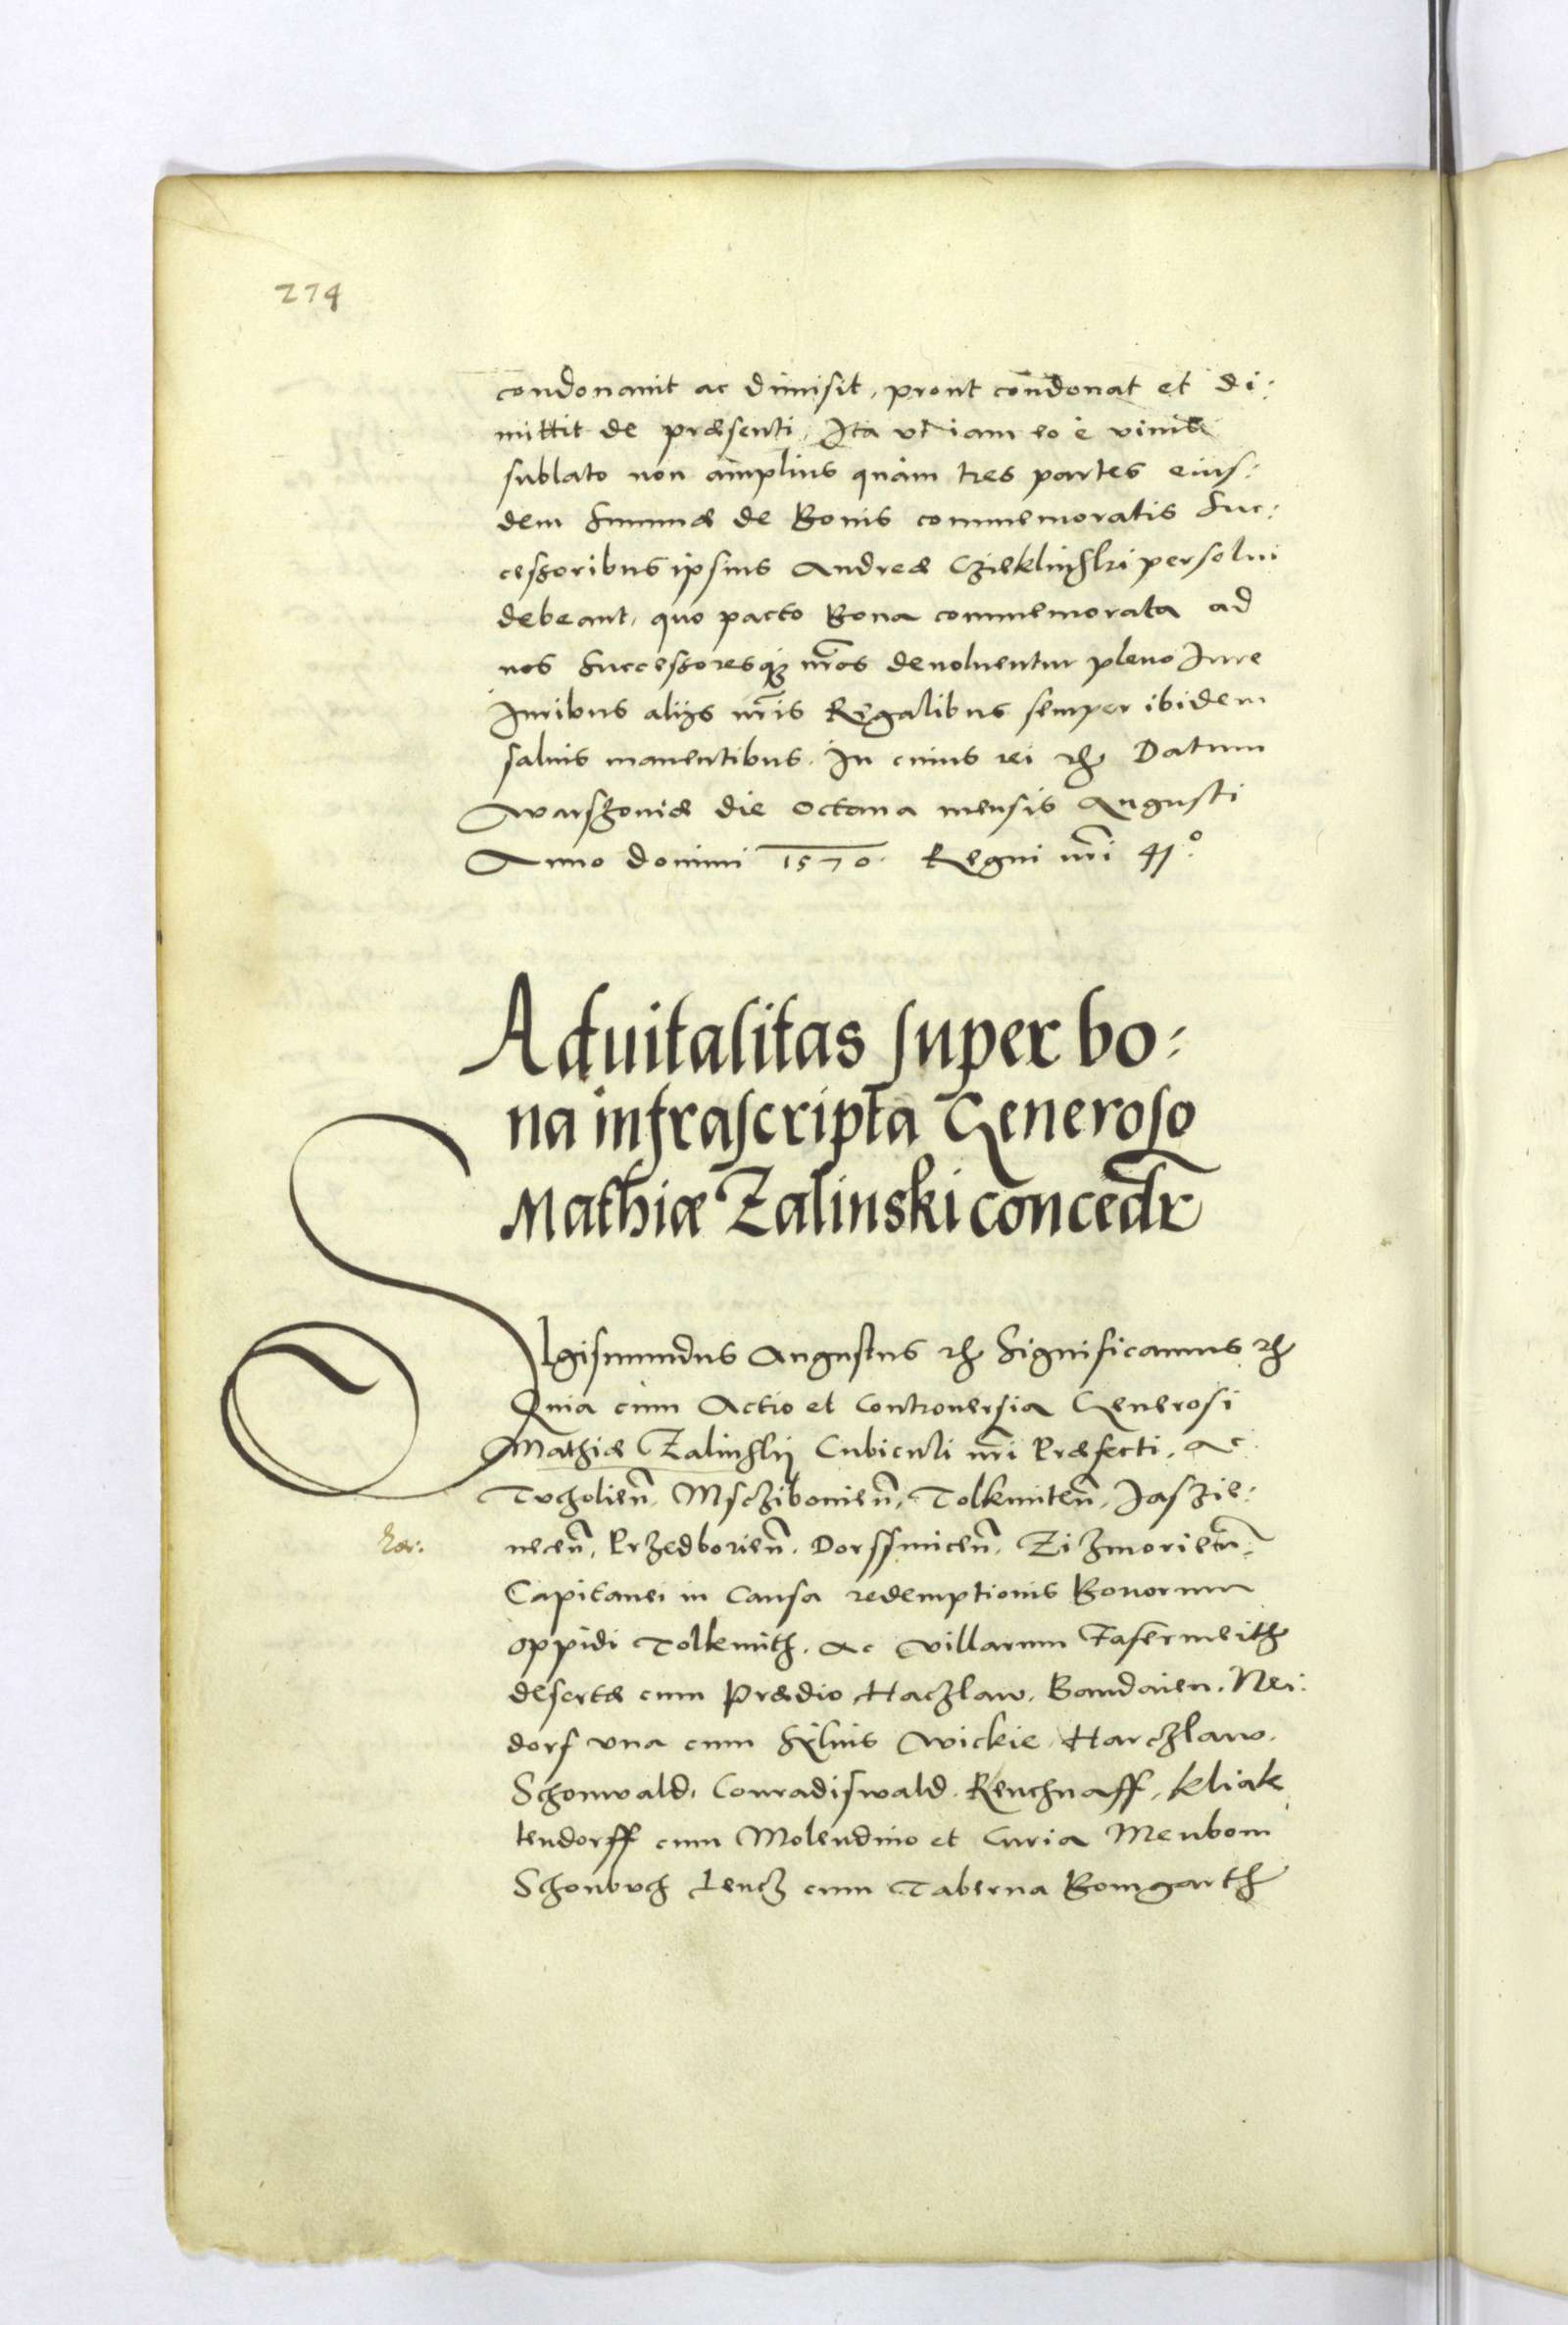 274
condonauit ac dimisit, prout condonat et di:
mittit de præsenti, Ita vt iam eo è viuis
sublato non amplius quàm tres partes eius:
dem Summæ de Bonis commemoratis Suc:
cessoribus ipsius Andreæ Czieklinski persolui
debeant, quo pacto Bona commemorata ad
nos Successoresq3 nr̃os deuoluentur pleno Iure
Iuribus alijs nr̃is Regalibus semper ibidem
saluis manentibus. In cuius rei etc Datum
Warszouiæ die octaua mensis Augusti
Anno domini 1570. Regni nr̃i 41º.
Aduitalitas super bo:
na infrascripta Generoso
Mathiæ Zalinski concedr̃
SIgismundus Augustus etc Significamus etc
Quia cùm Actio et Controuersia Generosi
Mathiæ Zalinskij Cubiculi nr̃i Præfecti, ac
Tucholien̄, Msczibouien̄, Tolkmiten̄, Jaszie:
necen̄, Przedborien̄, Dorssunicen̄, Zizmorien̄
Capitanei in Causa redemptionis Bonorum
oppidi Tolkmith, ac villarum Fasermeith
desertæ cum Prædio Haczlaw, Baudaien, Nei:
dorf vna cum Syluis Wickie Harczlaw,
Schonwald, Conradiswald, Renchnaff, Kliak
tendorff cum Molendino et Curia Meubom
Schonbuch Lencz cum Taberna Bomgarth